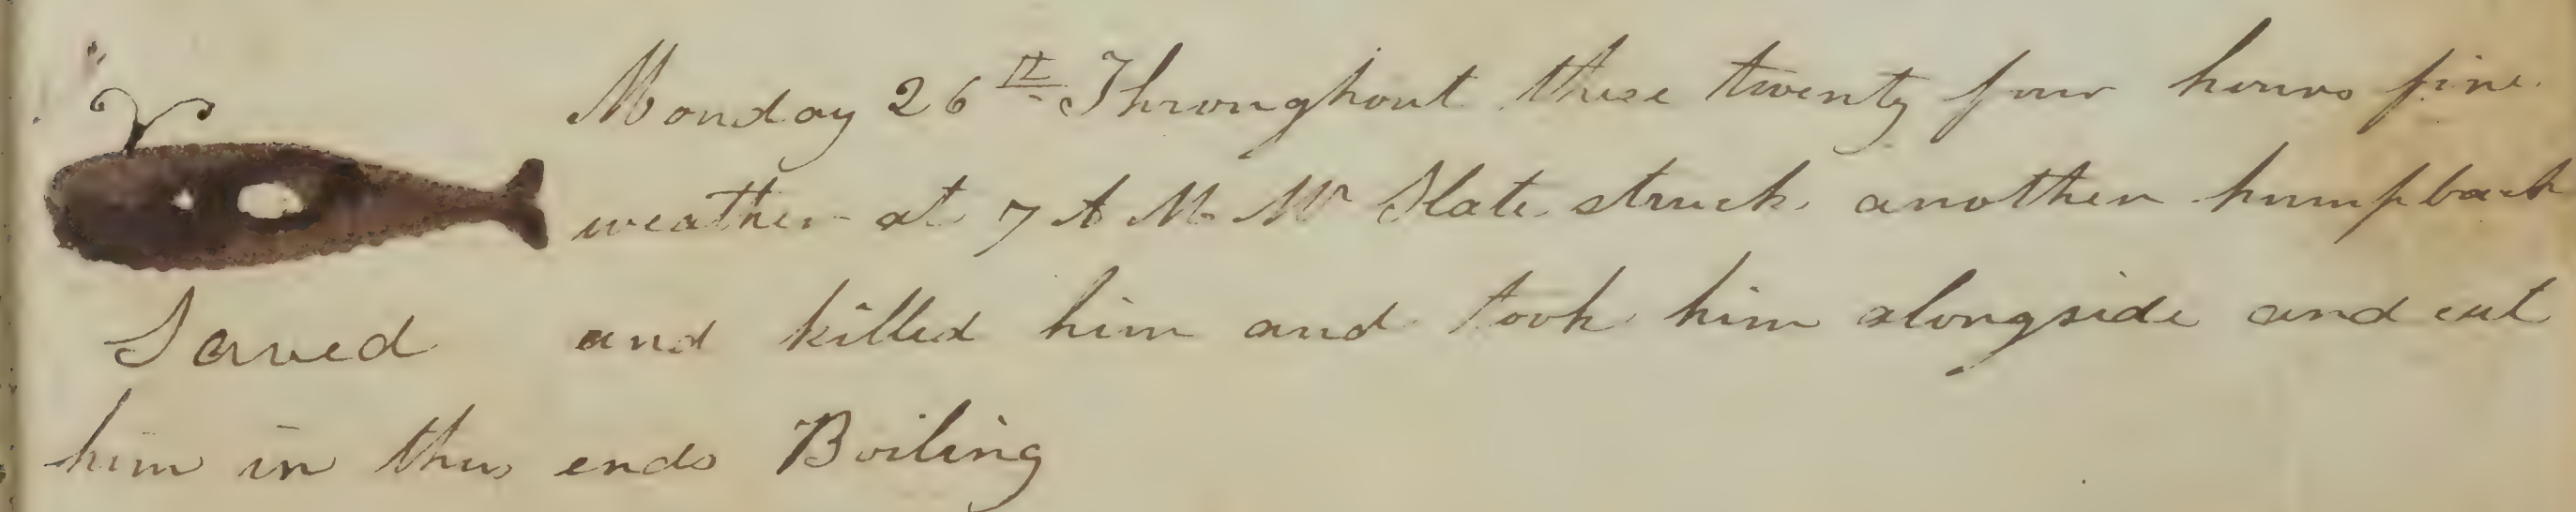 Monday 26th Throughout these twenty four hours fine
weather at 7 A M Mr Slate struck another humpback
Saved and killed him and took him alongside and cut
him in thus ends Boiling